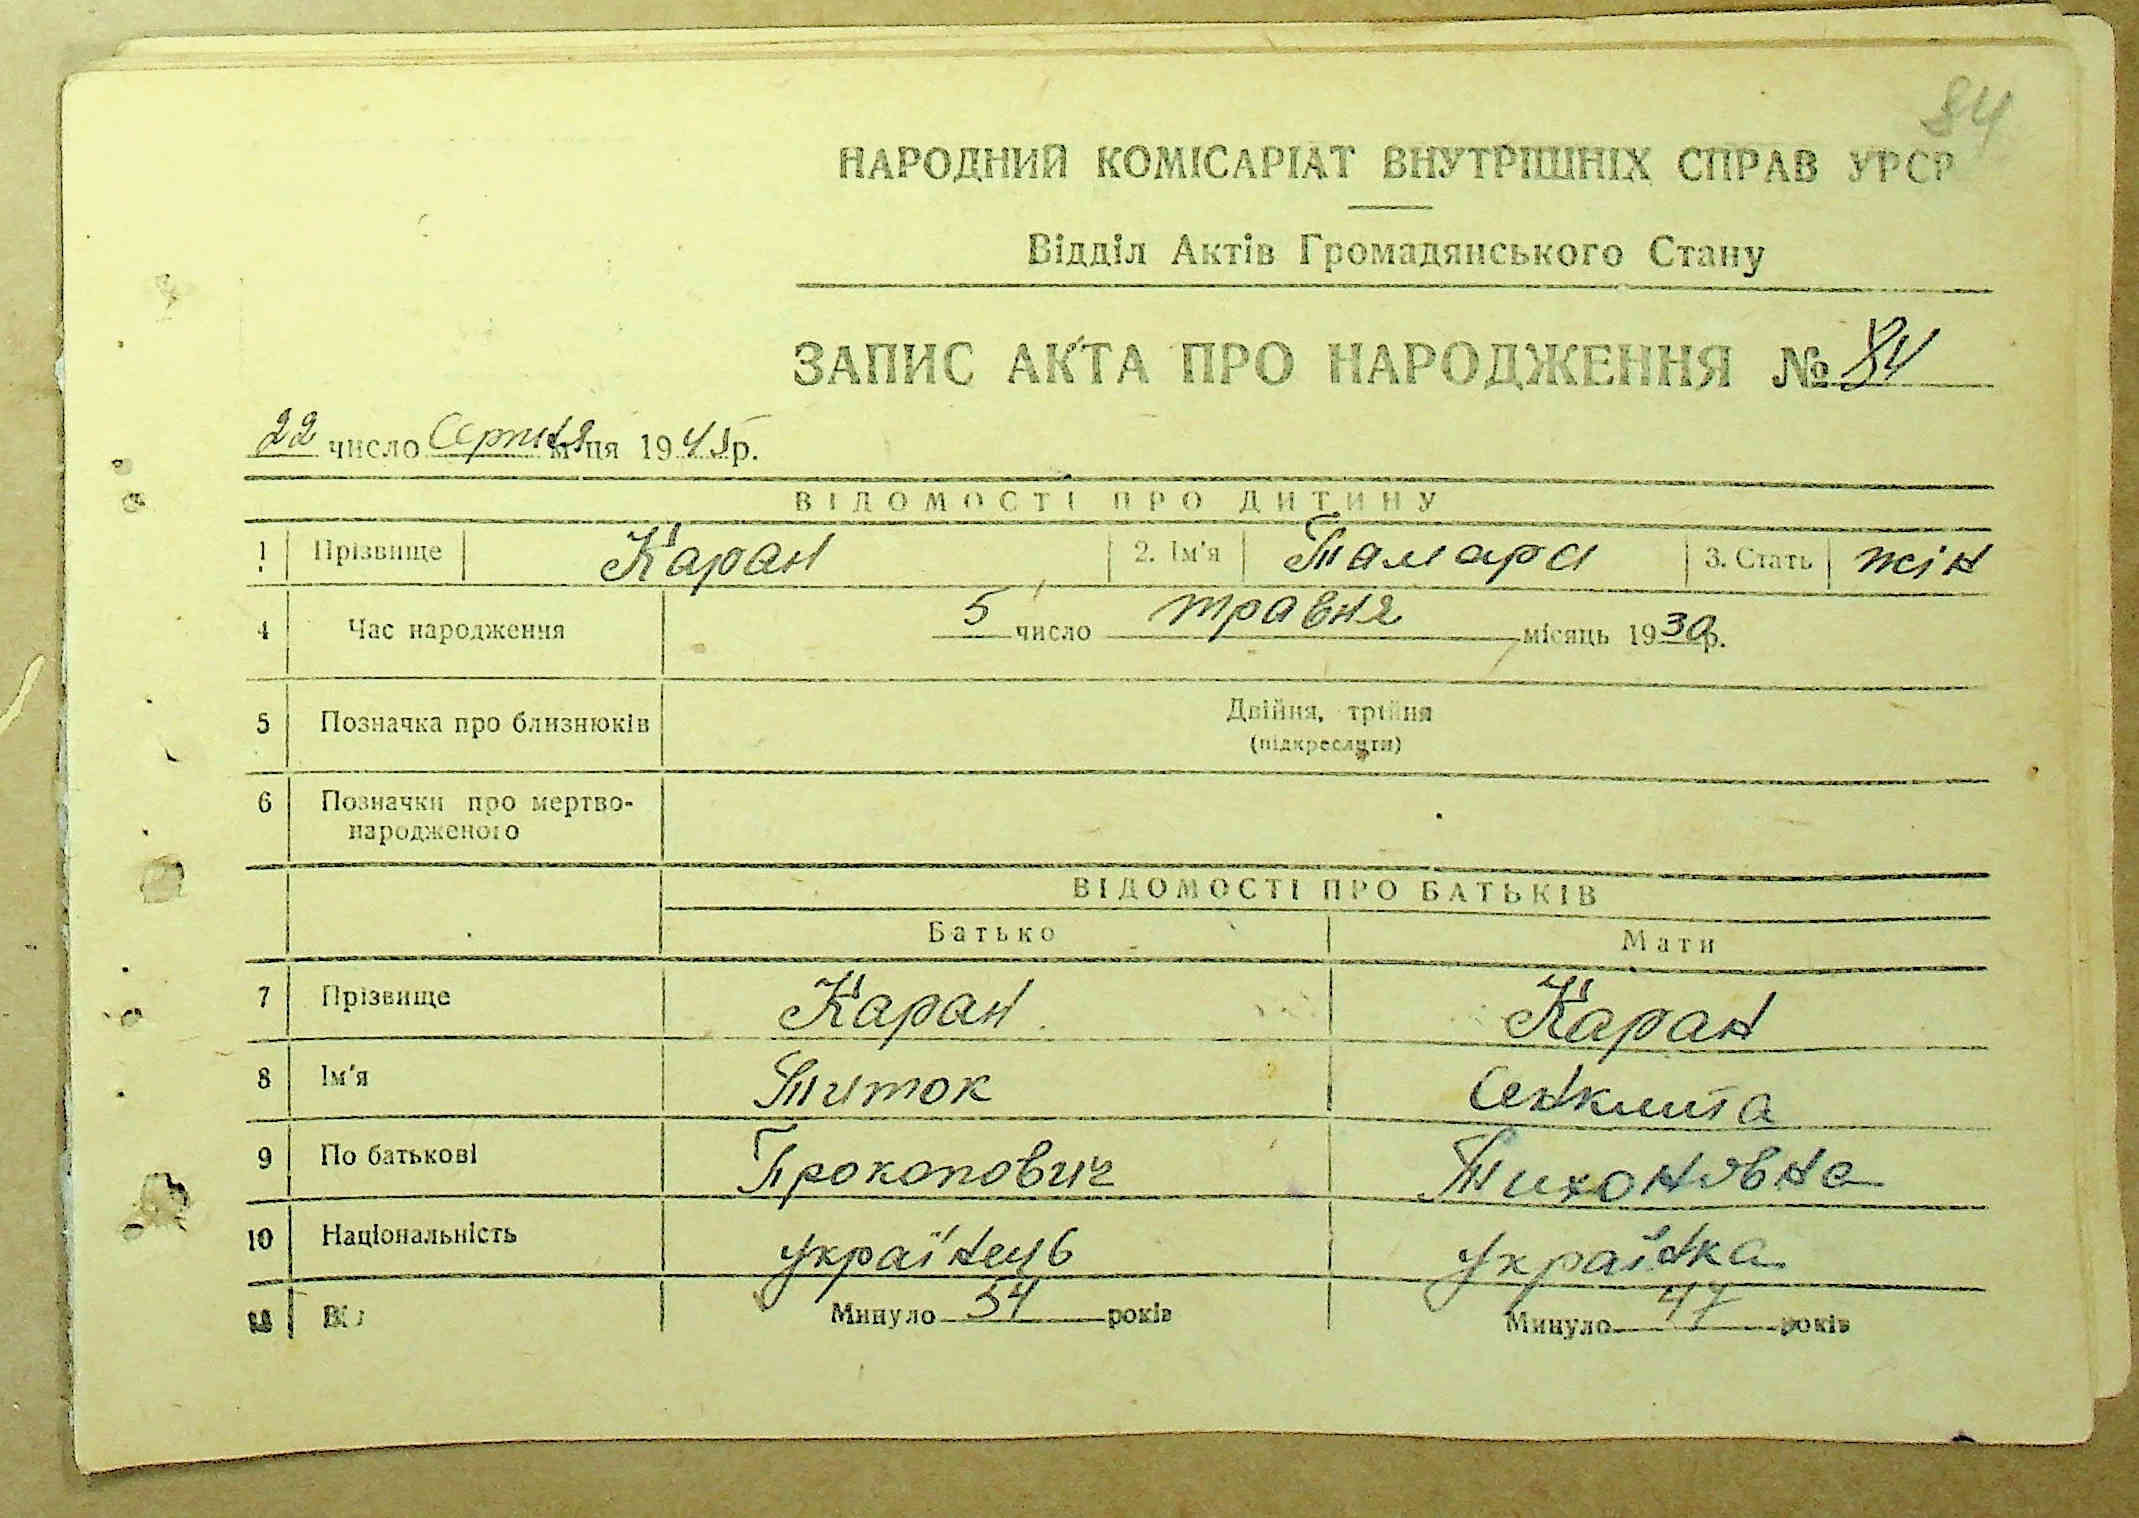 84
НАРОДНИЙ КОМІСАРІАТ ВНУТРІШНІХ СПРАВ УРСР
Відділ Актів Громадянського Стану
ЗАПИС АКТА ПРО НАРОДЖЕННЯ № 84
22 число Серпня м-ця 1945р.
ВІДОМОСТІ ПРО ДИТИНУ
1 Прізвище Каран 2. Ім'я Тамара 3. Стать жін
4 Час народження 5 число травня місяць 1930р.
5 Позначка про близнюків Двійня, трійня
(підкреслити)
6 Позначки про мертво-
народженого
ВІДОМОСТІ ПРО БАТЬКІВ
Батько Мати
7 Прізвище Каран Каран
8 Ім'я Титок
9 По батькові Прокопович Тихоновна
10 Національність українець українка
11 Вік Минуло 54 років Минуло 47 років